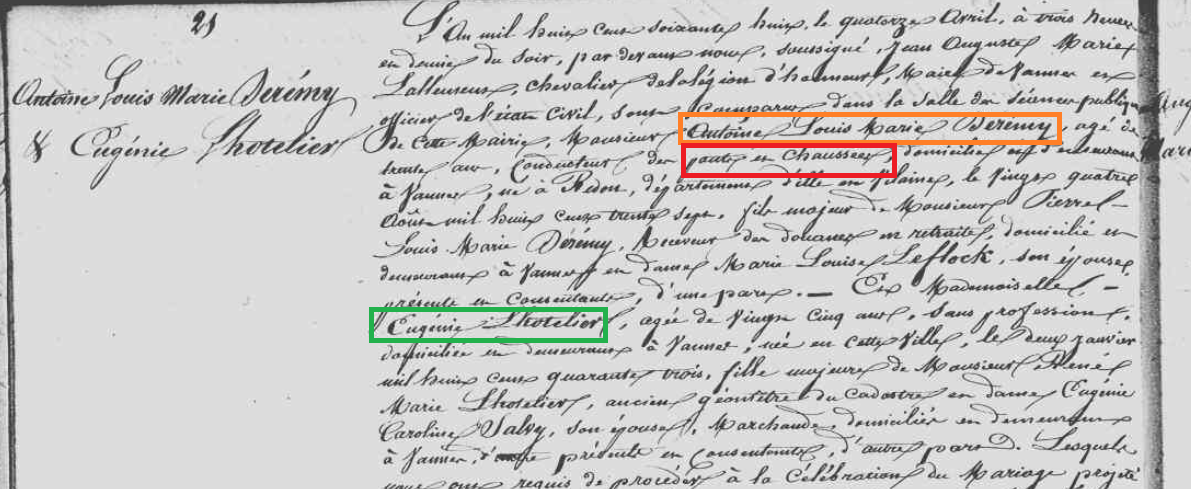 21
Antoine Louis Marie Dérémy
& Eugénie Lhotelier
L'An mil huit cent soixante huit, le quatorze Avril, à trois heures
en demie du soir, par devant nous, soussigné, Jean Auguste Marie
Lallemens, chevalier de la légion d'honneur, Maire de Vannes en
officier de l'état Civil, sont comparus dans la salle des séances publiques
de cette Mairie, Monsieur Antoine Louis Marie Dérémy, agé de
trente ans, Conducteur des ponts en chaussées, domicilié en demeurant
à Vannes, né à Redon, département d'ille en Vilaine, le Vingt quatre
Août mil huit cent trente sept, fils majeur de Monsieur Pierre
Louis Marie Dérémy, Receveur des douanes en retraite, domicilié en
demeurant à Vannes en dame Marie Louise Leflock, son épouse,
présente en Consentante, d'une part. — Et Mademoiselle, —
Eugénie Lhotelier, agée de Vingt Cinq ans, sans profession,
domiciliée en demeurant à Vannes, née en cette Ville, le deux janvier
mil huit cent quarante trois, fille majeure de Monsieur René
Marie Lhotelier, ancien géomètre du Cadastre en dame Eugénie
Caroline Salvy, son épouse, Marchande, domiciliés en demeurant
à Vannes, présente en Consentante, d'autre part. Lesquels
nous ont requis de procéder à la Célébration du Mariage projeté